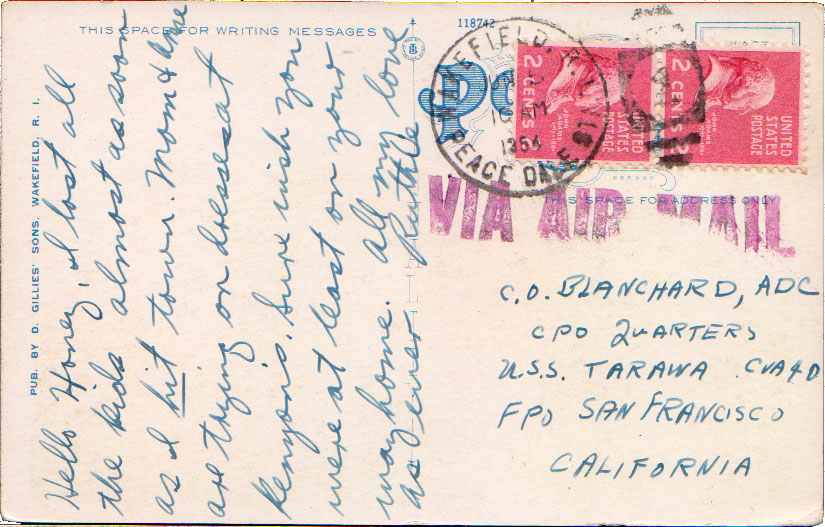 THIS SPACE FOR WRITING MESSAGES
Hello Honey, I lost all
the kids almost as soon
as I hit town. Mom & Anne
are trying on dresses at
Kenyon's. Sure wish you
were at least on your
way home. All my love
as ever Ruthie
PUB. BY D. GILLIES' SONS, WAKEFIELD, R. I.
118742
WAKEFIELD, R.I.
PM
1954
PEACE DALE
2 CENTS
UNITED
STATES
POSTAGE
2 CENTS 2
UNITED
STATES
POSTAGE
VIA AIR MAIL
THIS SPACE FOR ADDRESS ONLY
C.O. BLANCHARD, ADC
CPO QUARTERS
U.S.S. TARAWA CVA40
FPO SAN FRANCISCO
CALIFORNIA